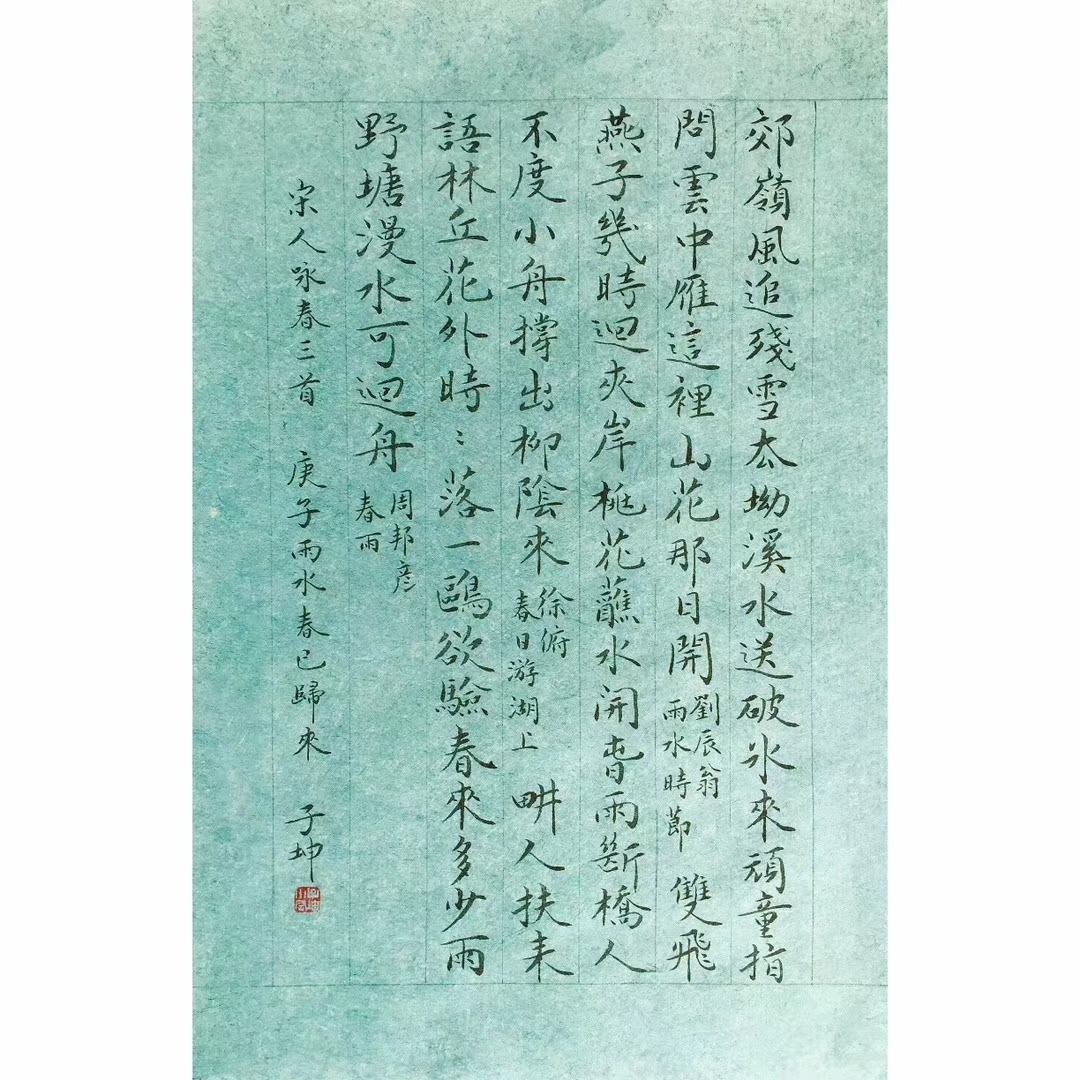 郊嶺風追殘雪厺坳溪水送破氷來頑童指
問雲中雁這裡山花那日開 劉辰翁 雨水時節 雙飛
燕子幾時迴夾岸桃花蘸水開旾雨斷橋人
不度小舟撐出柳陰來 徐俯 春日游湖上 畊人扶耒
語林丘花外時〻落一鷗欲驗春來多少雨
野塘漫水可迴舟 周邦彥 春雨
宋人咏春三首 庚子雨水春已歸來 子坤